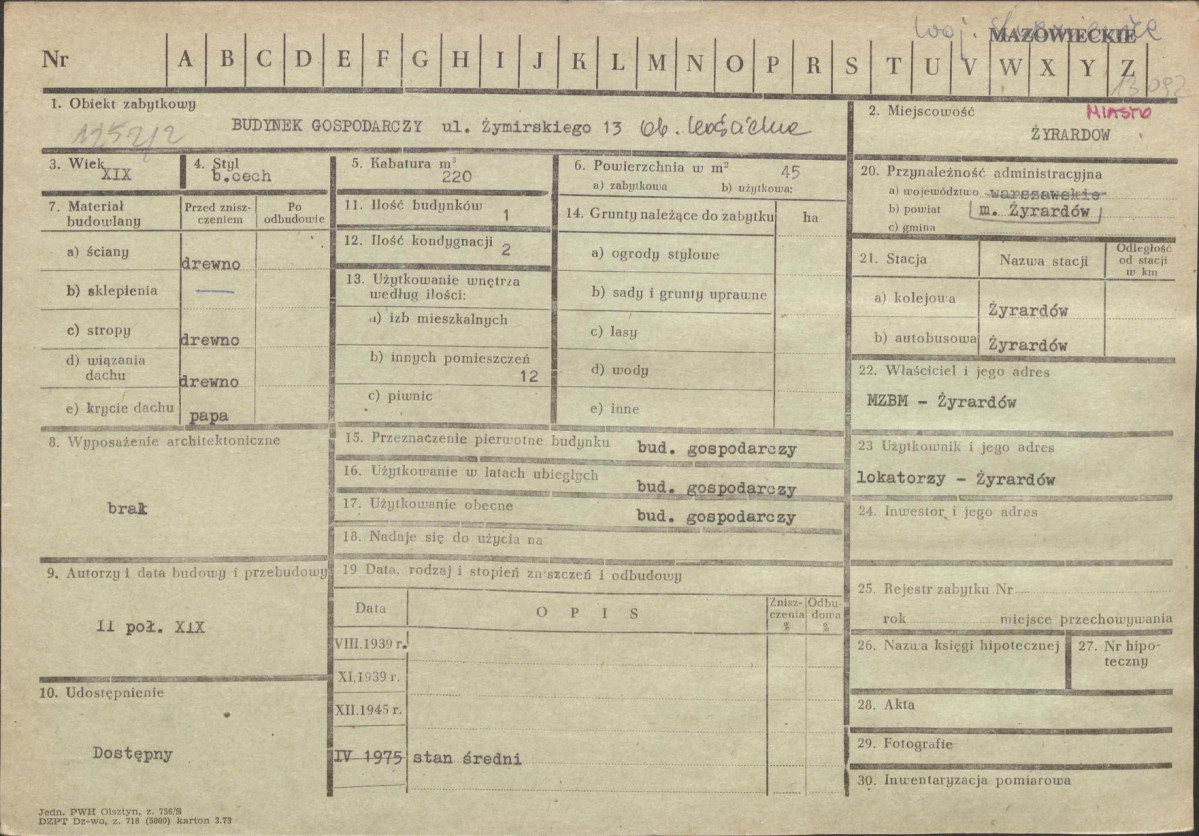 woj. skierniewickie
MAZOWIECKIE
Nr A B C D E F G H I J K L M N O P R S T U V W X Y Z
13 092
1. Obiekt zabytkowy
1252/2
BUDYNEK GOSPODARCZY ul. Żymirskiego 13 ob. Kościelna
2. Miejscowość MIASTO
ŻYRARDOW
3. Wiek XIX
4. Styl
b.cech
5. Kabatura m³
220
6. Powierzchnia w m² 45
a) zabytkowa b) użytkowa:
7. Materiał budowlany
Przed zniszczeniem
Po odbudowie
a) ściany drewno
b) sklepienia —
c) stropy drewno
d) wiązania dachu drewno
e) krycie dachu papa
8. Wyposażenie architektoniczne
brak
9. Autorzy i data budowy i przebudowy
II poł. XIX
10. Udostępnienie
Dostępny
11. Ilość budynków 1
12. Ilość kondygnacji 2
13. Użytkowanie wnętrza
według ilości:
a) izb mieszkalnych
b) innych pomieszczeń
12
c) piwnic
14. Grunty należące do zabytku ha
a) ogrody stylowe
b) sady i grunty uprawne
c) lasy
d) wody
e) inne
15. Przeznaczenie pierwotne budynku bud. gospodarczy
16. Użytkowanie w latach ubiegłych bud. gospodarczy
17. Użytkowanie obecne bud. gospodarczy
18. Nadaje się do użycia na
19 Data, rodzaj i stopień zniszczeń i odbudowy
Data O P I S Zniszczenia % Odbudowa %
VIII.1939 r.
XI.1939 r.
XII.1945 r.
IV 1975 stan średni
20. Przynależność administracyjna
a) województwo warszawskie
b) powiat m. Żyrardów
c) gmina
21. Stacja Nazwa stacji Odległość od stacji w km
a) kolejowa Żyrardów
b) autobusowa Żyrardów
22. Właściciel i jego adres
MZBM - Żyrardów
23 Użytkownik i jego adres
lokatorzy - Żyrardów
24. Inwestor i jego adres
25. Rejestr zabytku Nr
rok miejsce przechowywania
26. Nazwa księgi hipotecznej
27. Nr hipoteczny
28. Akta
29. Fotografie
30. Inwentaryzacja pomiarowa
Jedn. PWH Olsztyn, z. 756/S
DZPT Dz-wo, z. 718 (5000) karton 3.73